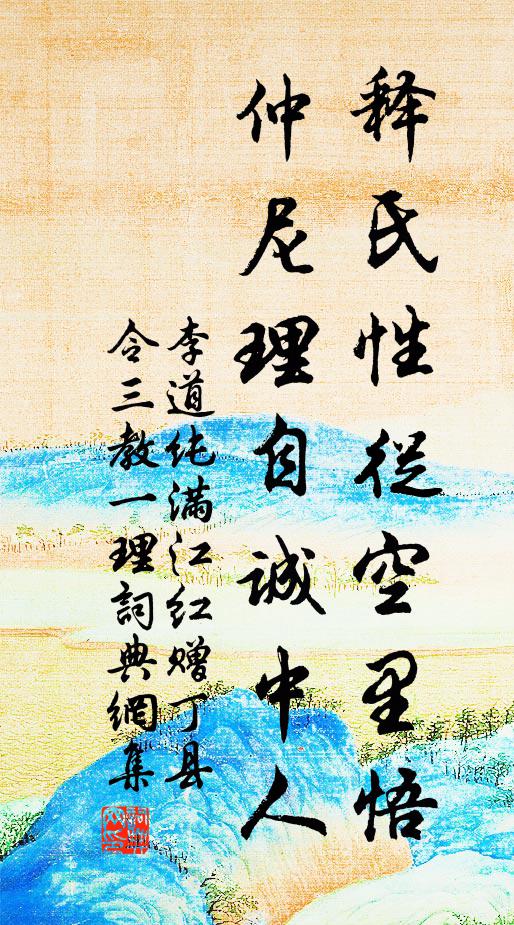 释氏性從空里悟
仲尼理自诚中人
李道纯满江红赠丁县
令三教一理詞典網集